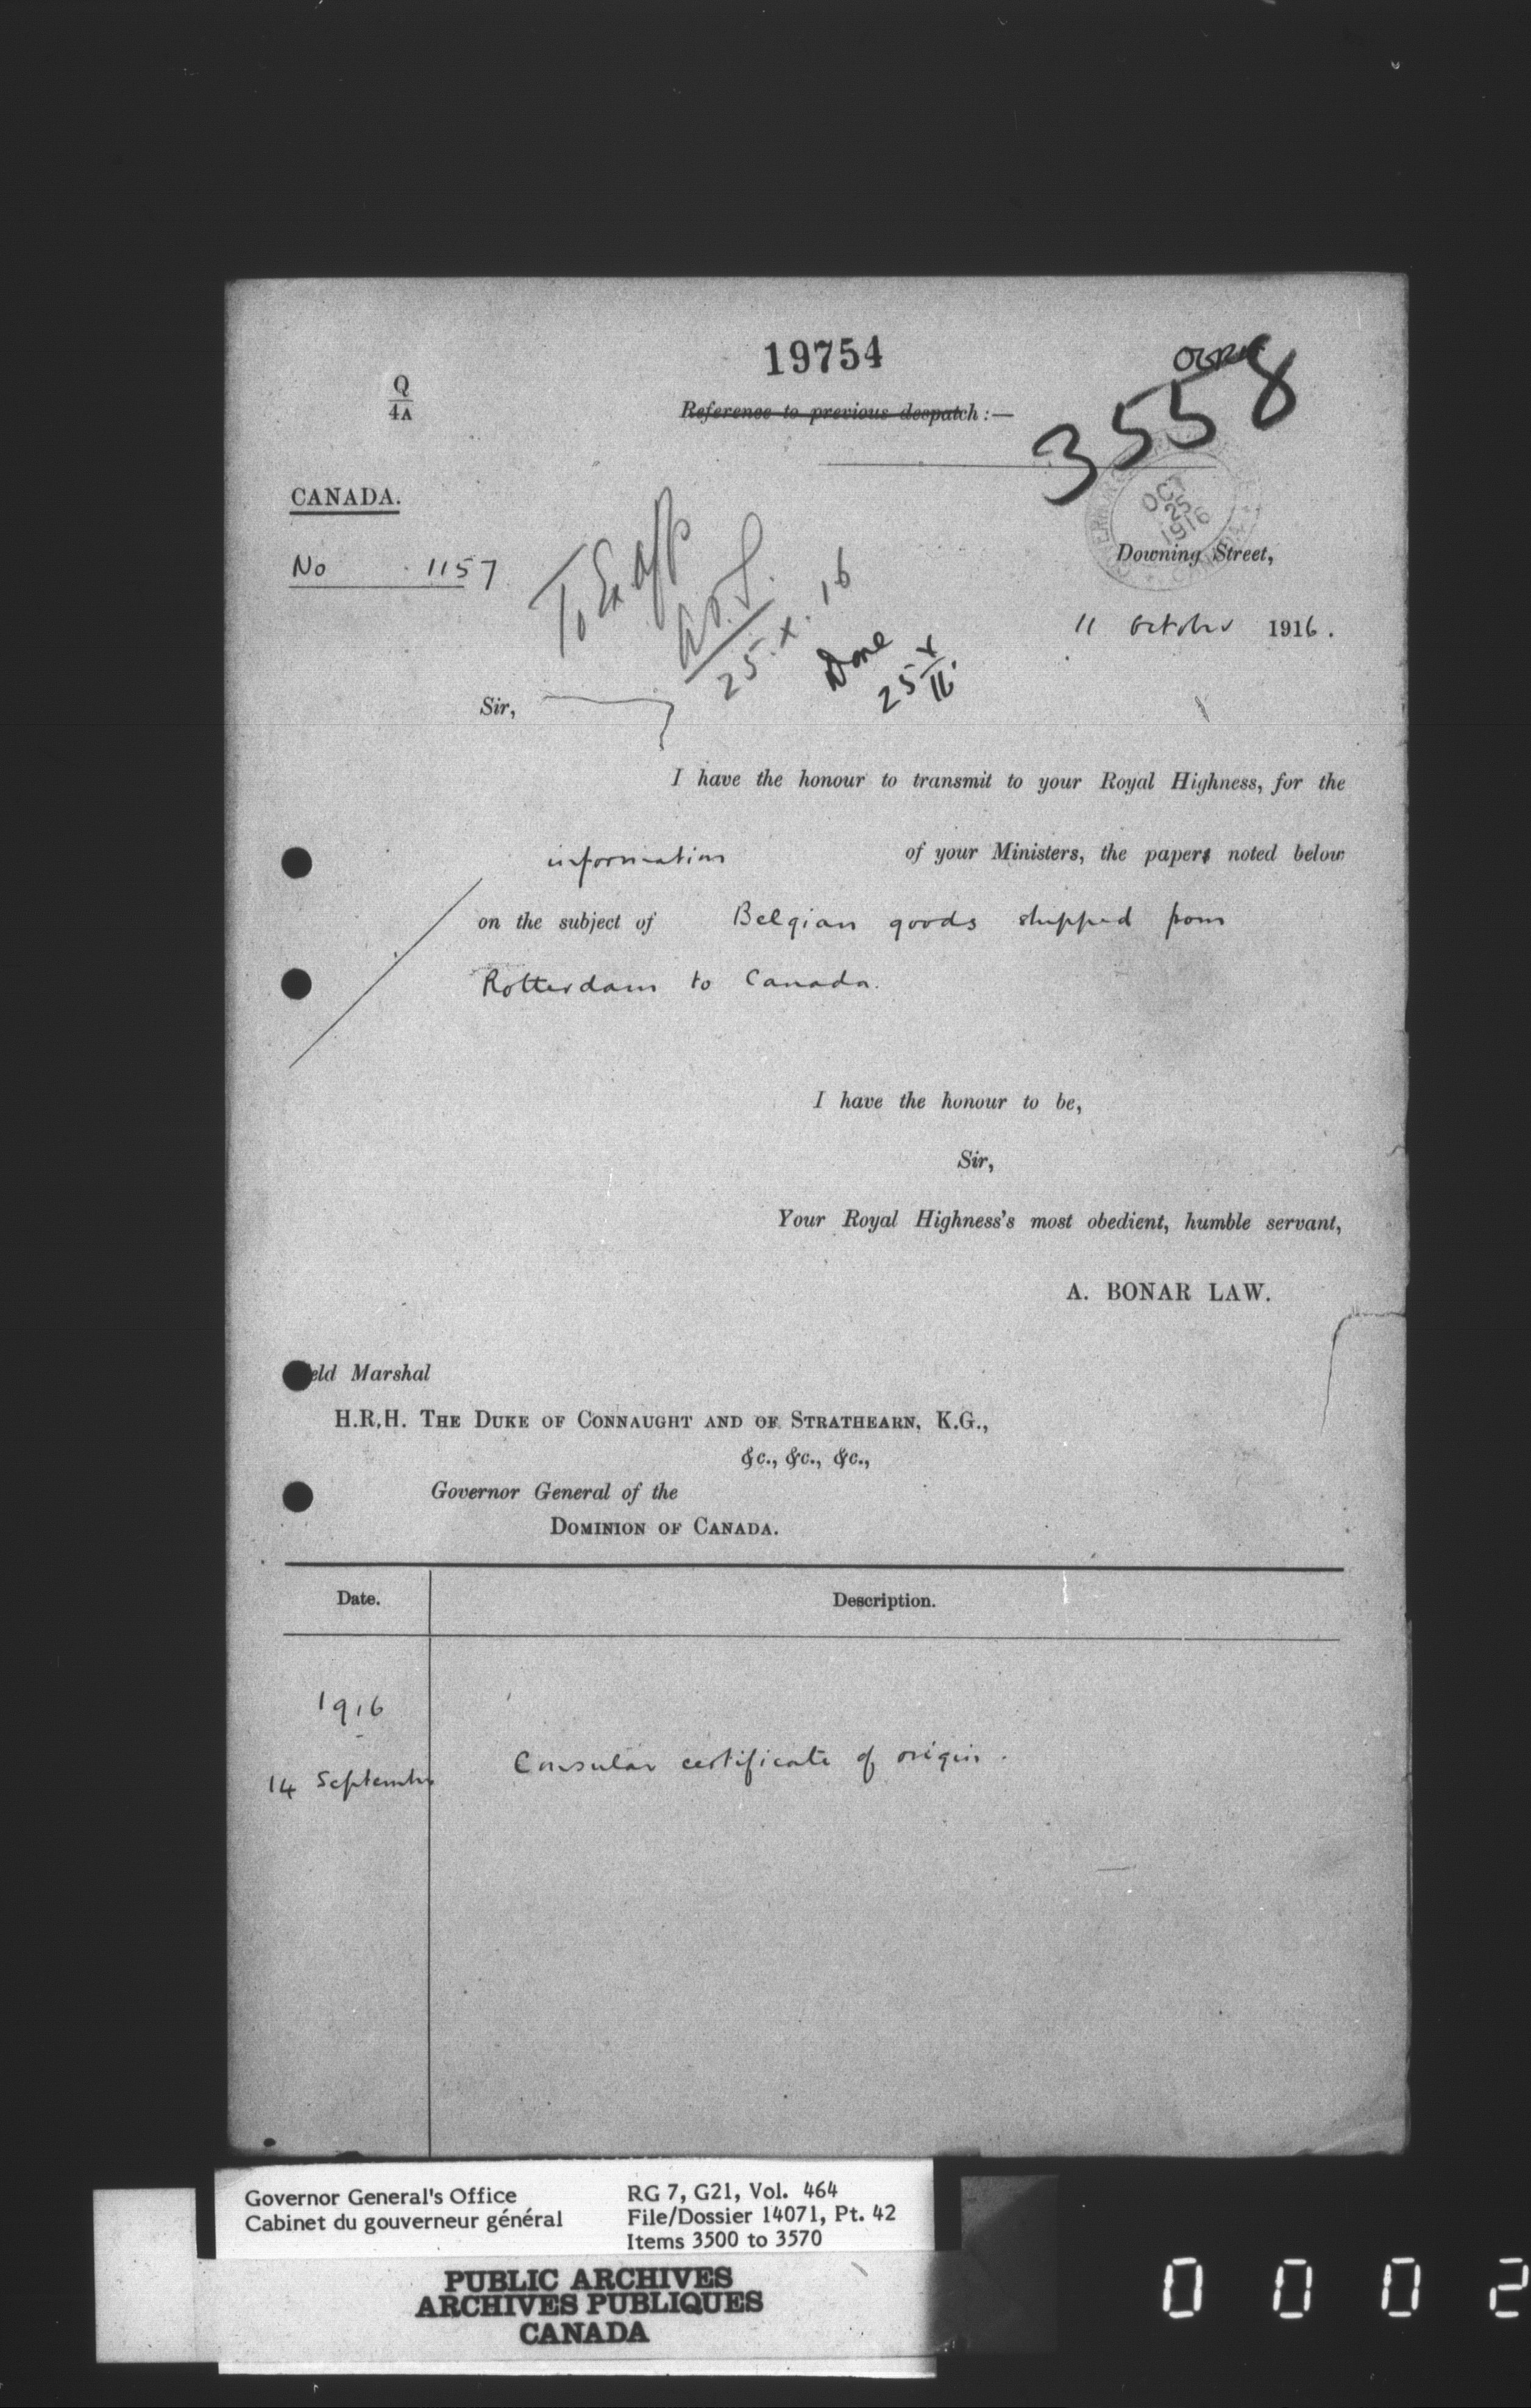 19754
Q
4A
Reference to previous despatch :—
3558
CANADA.
OC 25 1916
Downing Street,
No 1157
To Ex affs
25. x. 16
Done
25 x 16.
11 October 1916.
Sir,
I have the honour to transmit to your Royal Highness, for the
information of your Ministers, the papers noted below
on the subject of Belgian goods shipped from
Rotterdam to Canada.
I have the honour to be,
Sir,
Your Royal Highness's most obedient, humble servant,
A. BONAR LAW.
eld Marshal
H.R.H. THE DUKE OF CONNAUGHT AND OF STRATHEARN, K.G.,
&c., &c., &c.,
Governor General of the
DOMINION OF CANADA.
Date. Description.
1916
14 September Consular certificate of origin.
Governor General's Office RG 7, G21, Vol. 464
Cabinet du gouverneur général File/Dossier 14071, Pt. 42
Items 3500 to 3570
PUBLIC ARCHIVES
ARCHIVES PUBLIQUES
CANADA
0002